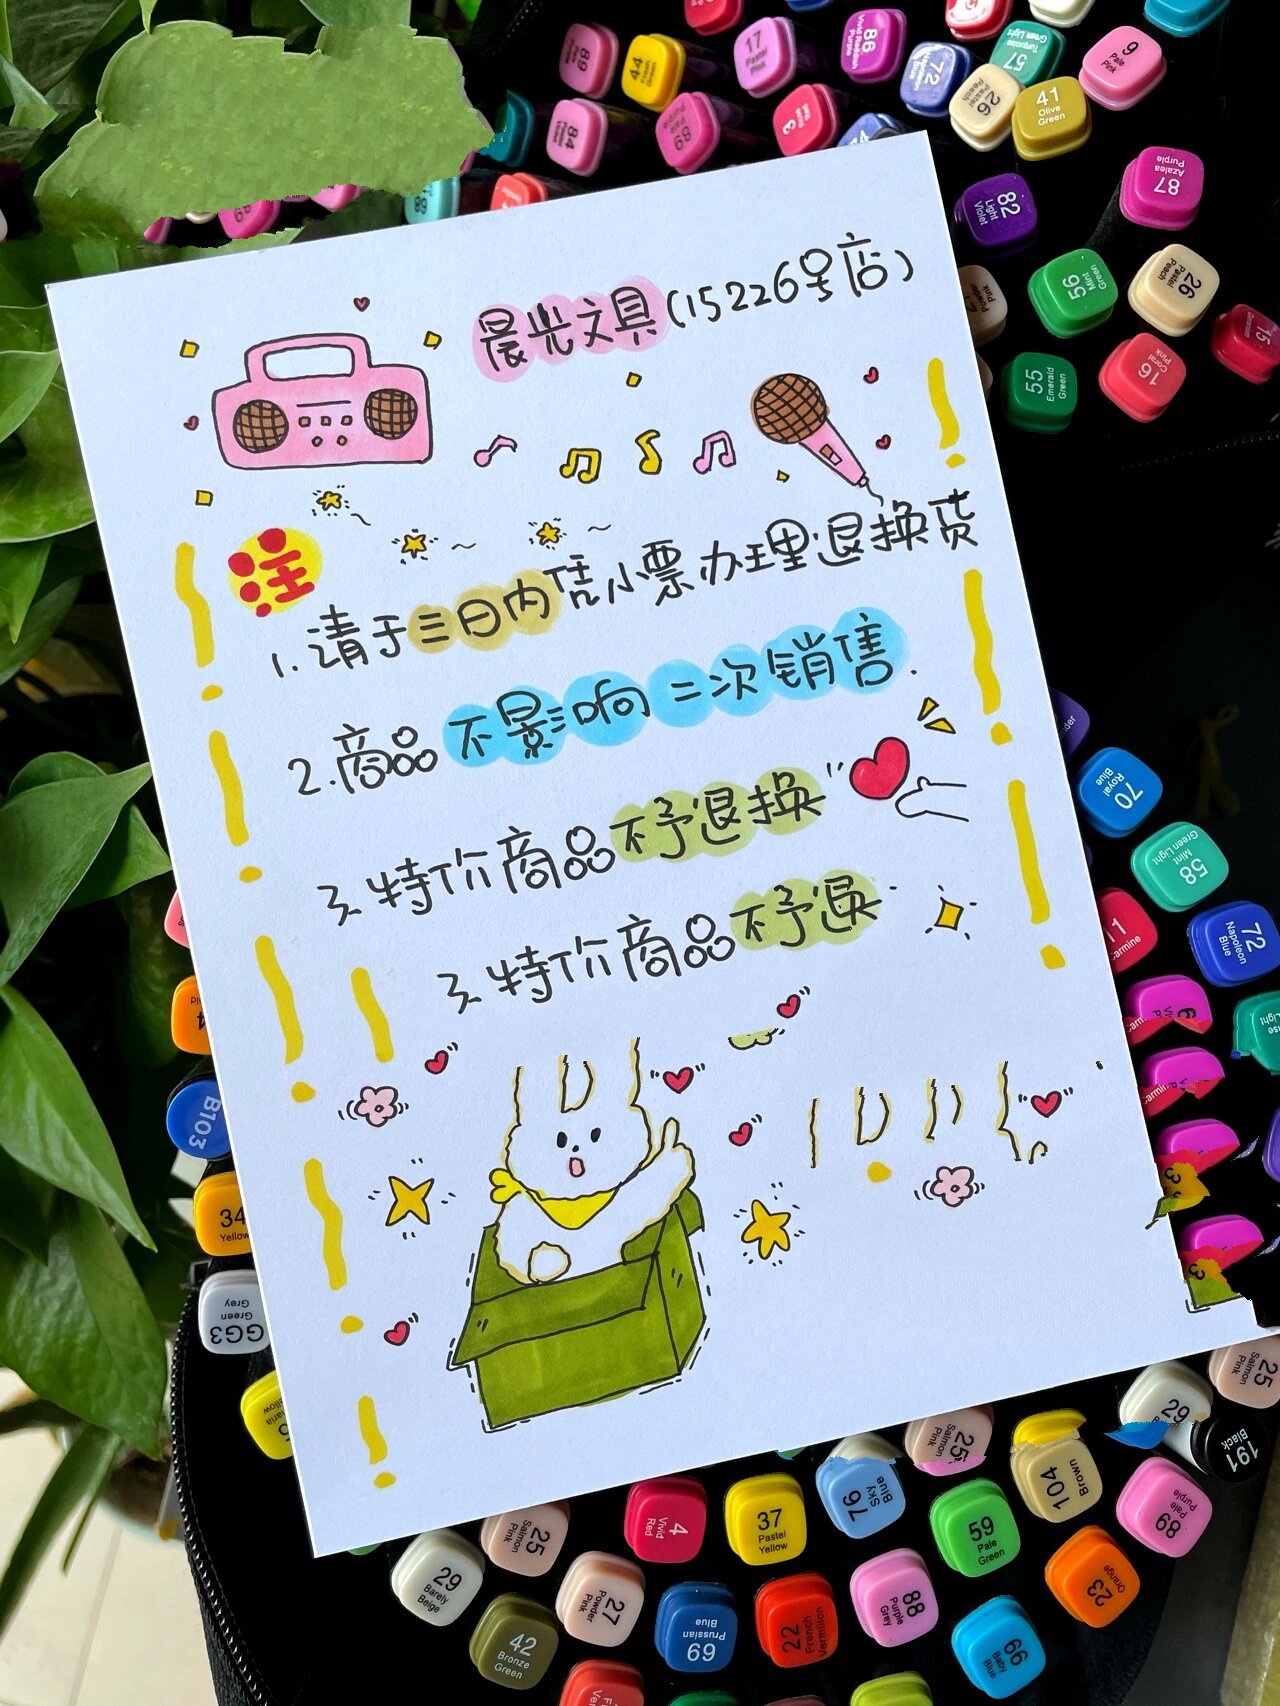 晨光文具(15226号店)
注
1.请于三日内凭小票办理退换货
2.商品不影响二次销售.
3.特价商品不予退换
3.特价商品不予退
17 Pastel Pink
86
72
57
26 Pastel Peach
41 Olive Green
9 Pale Pink
89
44
84
89
3
82 Light Violet
87 Azalea Purple
56 Mint Green
26 Pastel Peach
55 Emerald Green
16 Coral Pink
15
70 Royal Blue
58 Mint Green Light
11 Carmine
72 Napoleon Blue
B103
34 Yellow
GG3 Green Grey
25 Salmon Pink
29
191 Black
25 Salmon Pink
104 Brown
76 Sky Blue
37 Pastel Yellow
4 Vivid Red
25 Salmon Pink
29 Barely Beige
59 Pale Green
89 Pale Purple
23 Orange
88 Purple Grey
22 Franch Vermilion
69 Prussian Blue
27 Powder Pink
42 Bronze Green
66 Baby Blue